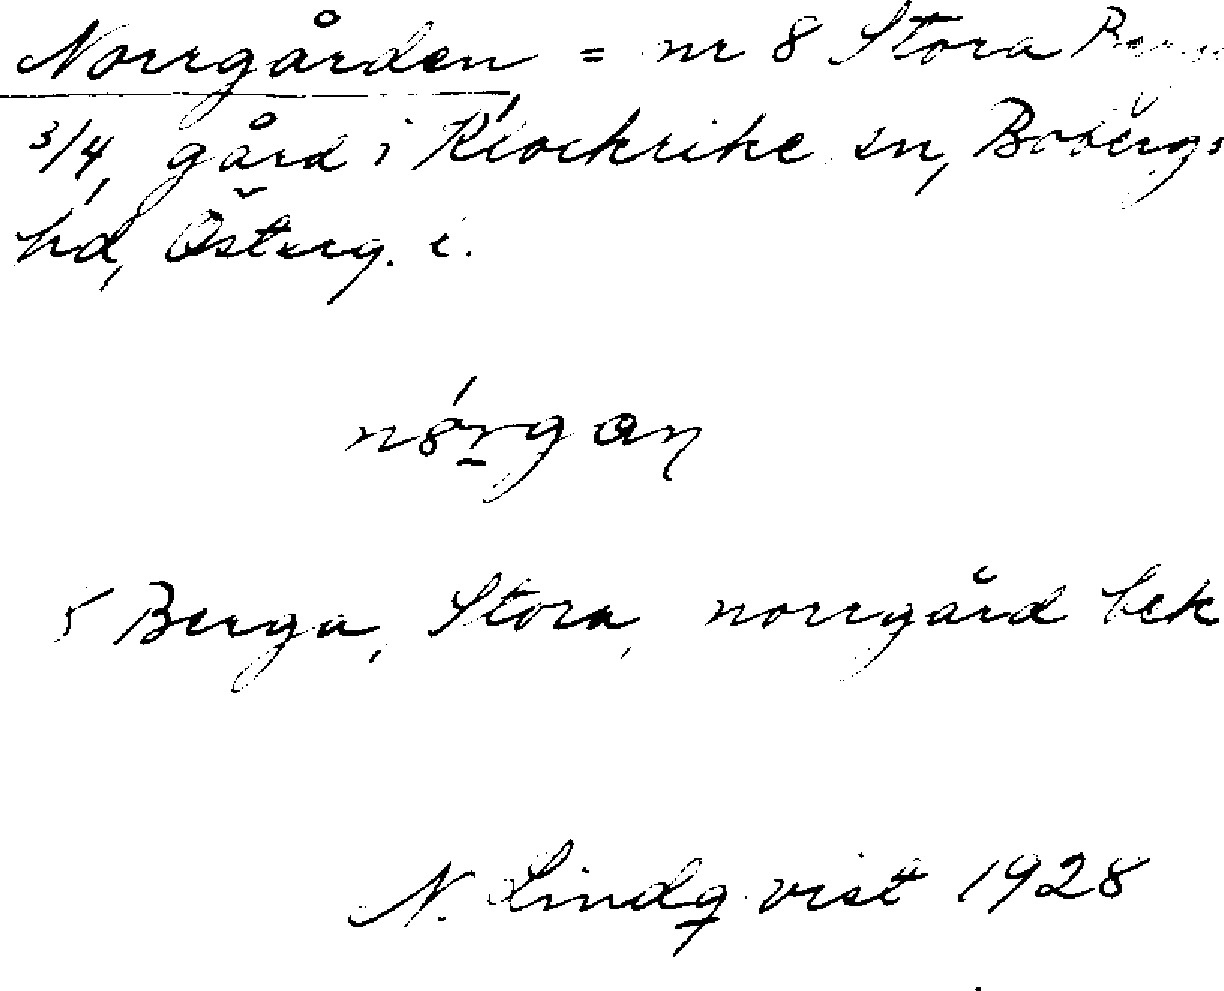 Norrgården = nr 8 Stora Berga
3/4, gård i Klockrike sn, Bobergs
hd, Österg. l.
nórgaŋ
Berga, Stora, norrgård bek
N. Lindqvist 1928